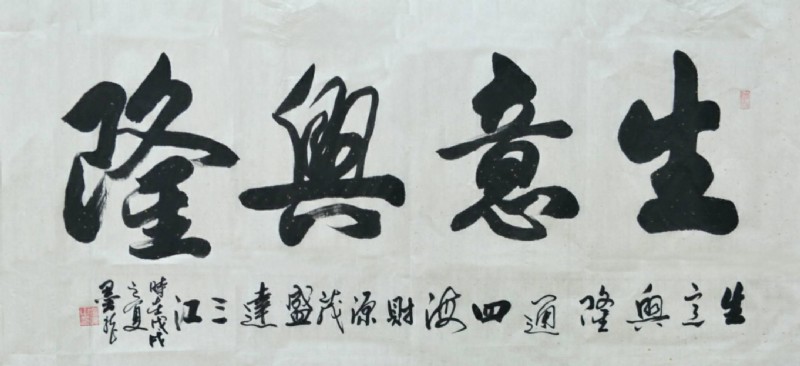 生意興隆
生意興隆通四海財源茂盛達三江
時在戊戌
之夏